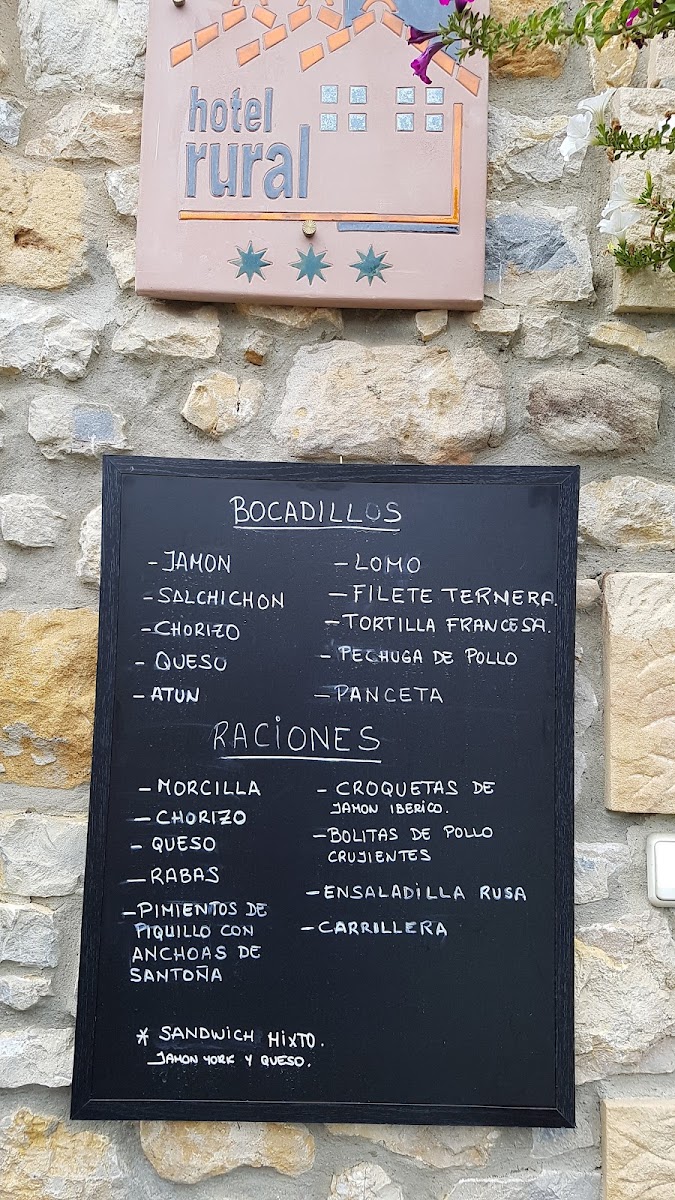 hotel
rural
BOCADILLOS
- JAMON
- SALCHICHON
- CHORIZO
- QUESO
- ATUN
- LOMO
- FILETE TERNERA.
- TORTILLA FRANCESA.
- PECHUGA DE POLLO
- PANCETA
RACIONES
- MORCILLA
- CHORIZO
- QUESO
- RABAS
- PIMIENTOS DE
PIQUILLO CON
ANCHOAS DE
SANTOÑA
- CROQUETAS DE
JAMON IBERICO.
- BOLITAS DE POLLO
CRUJIENTES
- ENSALADILLA RUSA
- CARRILLERA
* SANDWICH MIXTO.
JAMON YORK Y QUESO.